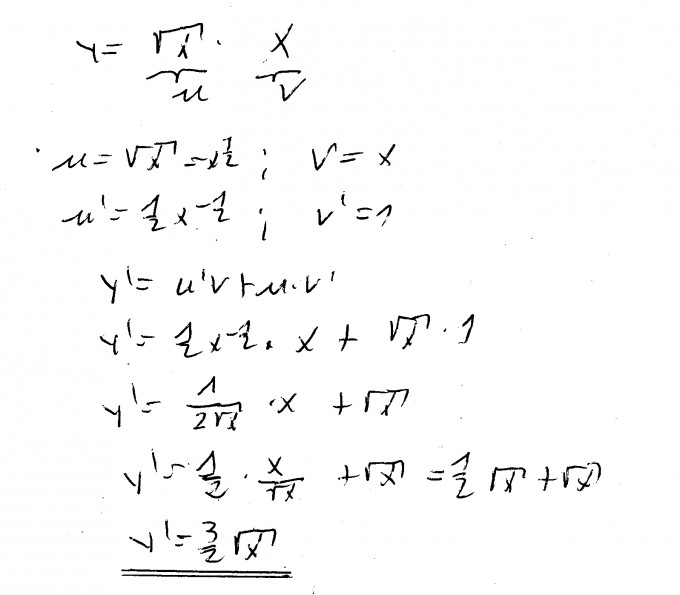 y = √x · x
u v
u = √x = x^½ ; v = x
u' = ½ x^-½ ; v' = 1
y' = u'v + u·v'
y' = ½ x^-½ · x + √x · 1
y' = 1/(2√x) · x + √x
y' = ½ · x/√x + √x = ½ √x + √x
y' = 3/2 √x